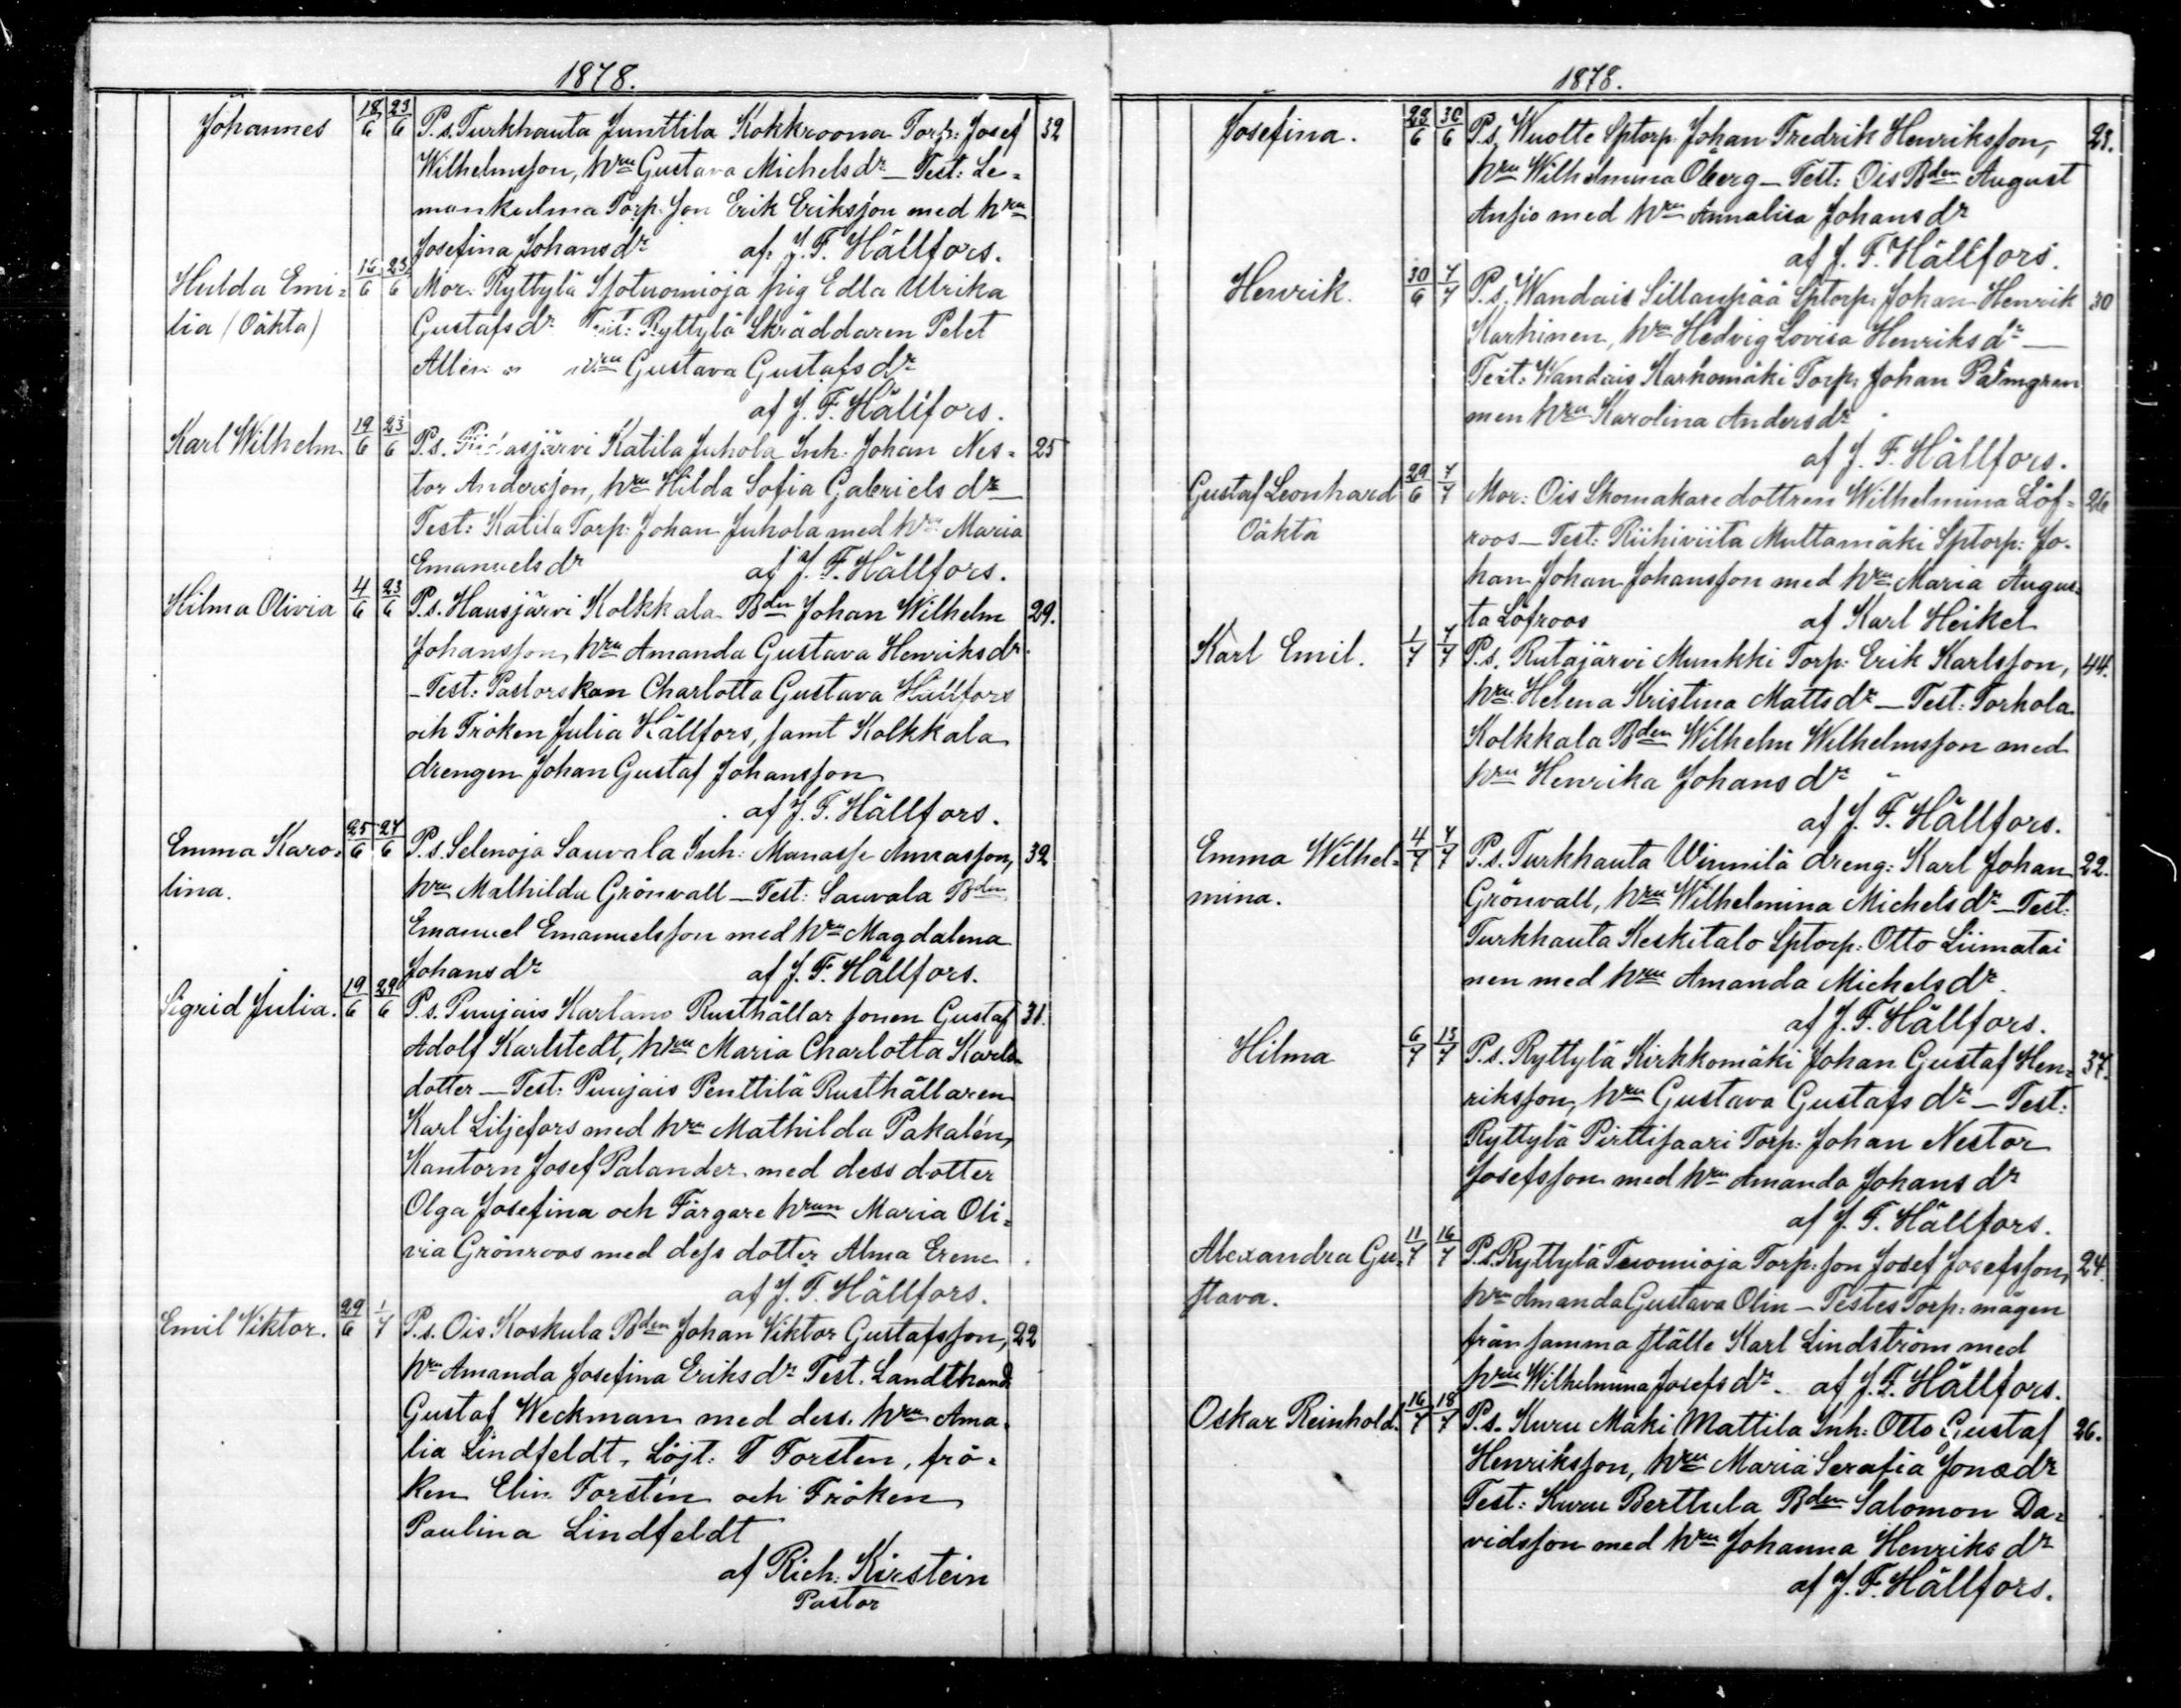 1878.
Johannes 18/6 23/6 P.s. Turkhauta Junttila Kokkroona Torp: Josef 32
Wilhelmsson, hru Gustava Michelsdr – Test: Le-
monkulma Torp. son Erik Eriksson med hru
Josefina Johansdr af J. F. Hällfors.
Hulda Emi- 16/6 23/6 Mor. Ryttylä Isotuomioja pig Edla Ulrika
lia (Oäkta) Gustafsdr Test: Ryttylä Skräddaren Petet
hru Gustava Gustafsdr
af J. F. Hällfors.
Karl Wilhelm 19/6 23/6 P.s. Katila Juhola Inh. Johan Nes- 25
tor Andersson, hru Hilda Sofia Gabrielsdr –
Test: Katila Torp: Johan Juhola med hru Maria
Emanuelsdr af J. F. Hällfors.
Hilma Olivia 4/6 23/6 P.s. Hausjärvi Kolkkala Bdn Johan Wilhelm 29.
Johansson, hru Amanda Gustava Henriksdr.
– Test: Pastorskan Charlotta Gustava Hällfors
och Fröken Julia Hällfors, samt Kolkkala
drengen Johan Gustaf Johansson
af J. F. Hällfors.
Emma Karo- 25/6 27/6 P.s. Selenoja Sauvala Inh: Manasse 32
lina. hru Mathilda Grönvall – Test: Sauvala Bden
Emanuel Emanuelsson med hru Magdalena
Johansdr af J. F. Hällfors.
Sigrid Julia. 19/6 29/6 P.s. Puujais Karlano Rusthållar sonen Gustaf 31.
Adolf Karlstedt, hru Maria Charlotta Karls
dotter – Test: Puujais Penttilä Rusthållaren
Karl Liljefors med hru Mathilda Pakalén,
Kantorn Josef Palander med dess dotter
Olga Josefina och Färgare hrun Maria Oli-
via Grönroos med dess dotter Alma Erene
af J. F. Hällfors.
Emil Viktor. 29/6 1/7 P.s. Ois Koskula Bden Johan Viktor Gustafsson, 22
hru Amanda Josefina Eriksdr Test. Landthand
Gustaf Weckman med dess. hru Ama-
lia Lindfeldt, Löjt: T Forsten, frö-
ken Elin Forstén och Fröken
Paulina Lindfeldt
af Rich: Kirstein
Pastor
1878.
Josefina. 22/6 30/6 P.s. Wuolte Sptorp. Johan Fredrik Henriksson, 23.
hru Wilhelmina Öberg – Test: Ois Bden August
Ansio med hru Annalisa Johansdr
af J. F. Hällfors.
Henrik. 30/6 7/7 P.s. Wandais Sillanpää Sptorp. Johan Henrik 30
Karhinen, hru Hedvig Lovisa Henriksdr –
Test: Wandais Karhomäki Torp. Johan Palmgren
men hru Karolina Andersdr
af J. F. Hällfors.
Gustaf Leonhard 29/6 7/7 Mor: Ois Skomakare dottren Wilhelmina Löf- 26
Oäkta roos – Test: Riihiviita Multamäki Sptorp: Jo-
han Johan Johansson med hru Maria Augus-
ta Löfroos af Karl Heikel
Karl Emil. 1/7 7/7 P.s. Rutajärvi Munkki Torp: Erik Karlsson, 44.
hru Helena Kristina Mattsdr – Test: Torhola
Kolkkala Bden Wilhelm Wilhelmsson med
hru Henrika Johansdr
af J. F. Hällfors.
Emma Wilhel- 4/7 7/7 P.s. Turkhauta Winnilä dreng: Karl Johan 22.
mina. Grönvall, hru Wilhelmina Michelsdr – Test:
Turkhauta Keskitalo Sptorp: Otto Liimatai
nen med hru Amanda Michelsdr.
af J. F. Hällfors.
Hilma 6/7 13/7 P.s. Ryttylä Kirkkomäki Johan Gustaf Hen- 37.
riksson, hru Gustava Gustafsdr – Test:
Ryttylä Pirttisaari Torp: Johan Nestor
Josefsson med hru Amanda Johansdr
af J. F. Hällfors.
Alexandra Gu- 11/7 16/7 P.s. Ryttylä Tuomioja Torp: son Josef Josefsson, 24.
stava. hru Amanda Gustava Olin – Testes Torp: mågen
från samma ställe Karl Lindström med
hru Wilhelmina Josefsdr. af J. F. Hällfors.
Oskar Reinhold. 16/7 18/7 P.s. Kuru Mäki Mattila Inh: Otto Gustaf 26.
Henriksson, hru Maria Serafia Jonædr
Test: Kuru Berttula Bden Salomon Da-
vidsson med hru Johanna Henriksdr
af J. F. Hällfors.